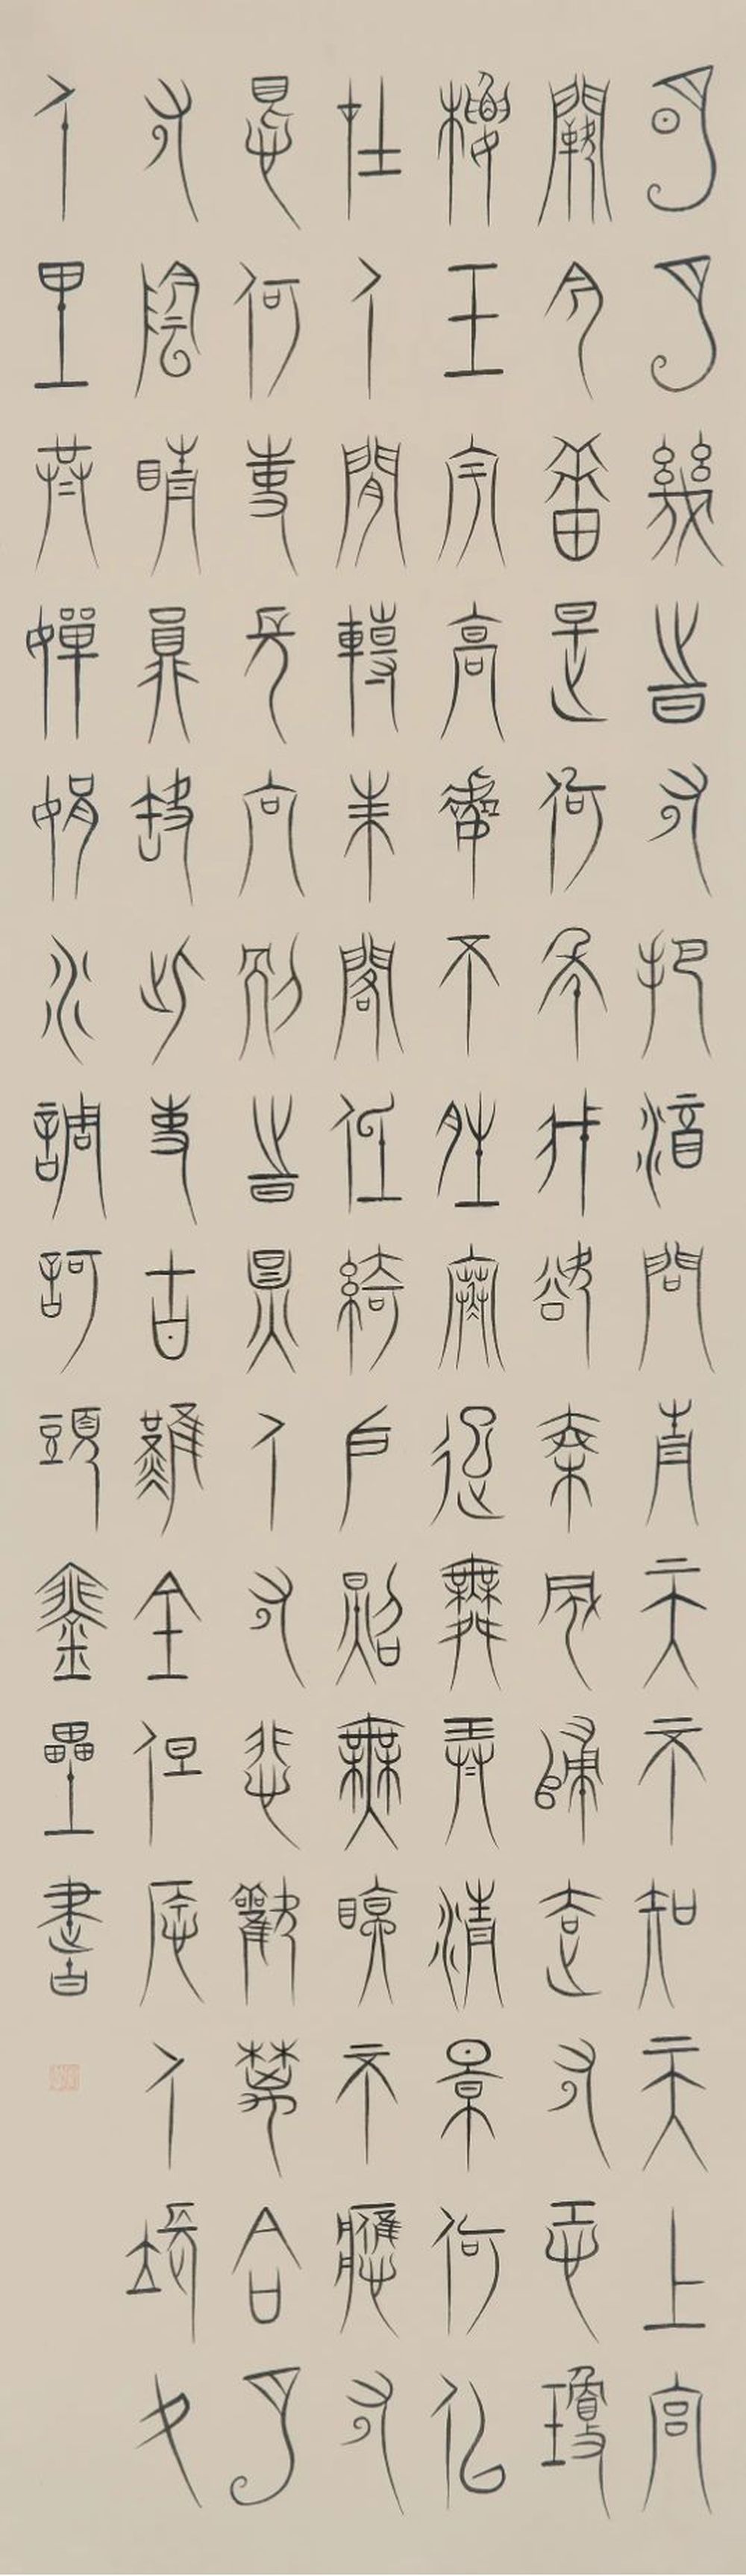 明月幾時有把酒問青天不知天上宮
闕今番是何年我欲乘風歸去有恐瓊
樓玉宇高處不勝寒起舞弄清影何似
在人間轉朱閣低綺戶照無眠不應有
恨何事長向別時圓人有悲歡離合月
有陰晴圓缺此事古難全但願人長久
千里共嬋娟水調歌頭壘書